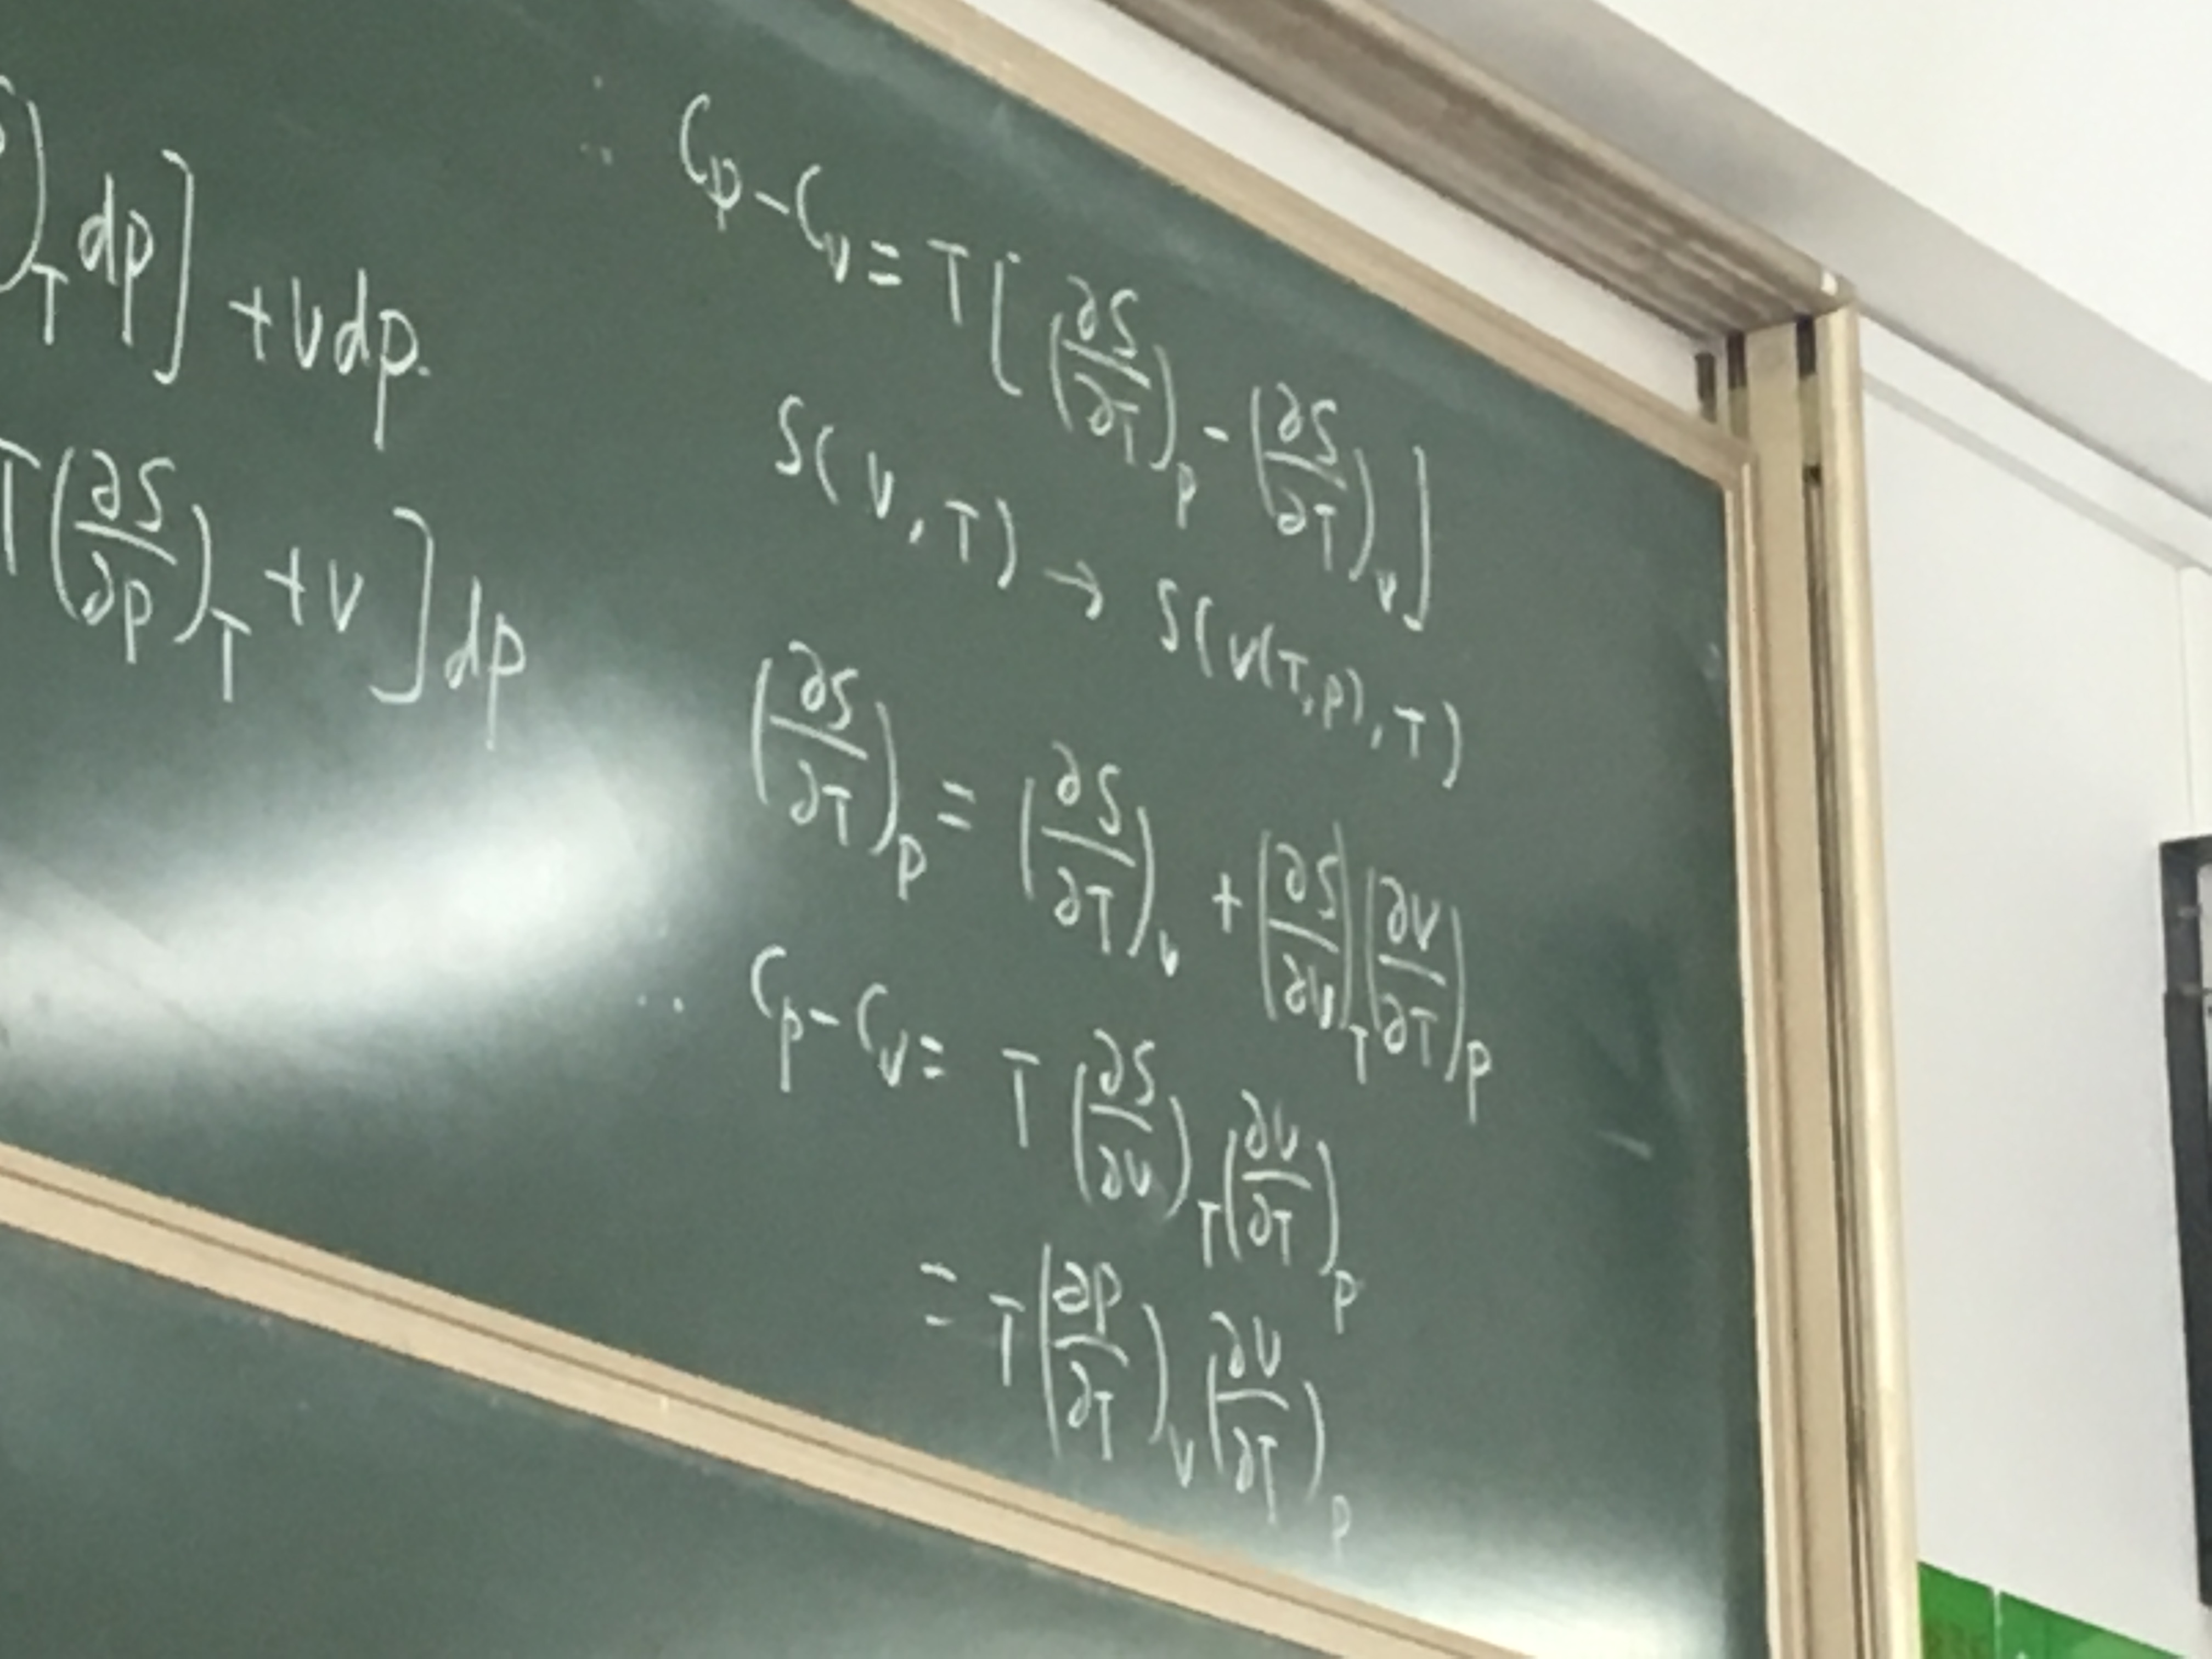 )_T dp] + V dp.
T(∂S/∂p)_T + V] dp
∴ C_p - C_V = T[(∂S/∂T)_p - (∂S/∂T)_V]
S(V, T) → S(V(T, p), T)
(∂S/∂T)_p = (∂S/∂T)_V + (∂S/∂V)_T (∂V/∂T)_p
∴ C_p - C_V = T(∂S/∂V)_T (∂V/∂T)_p
= T(∂p/∂T)_V (∂V/∂T)_p